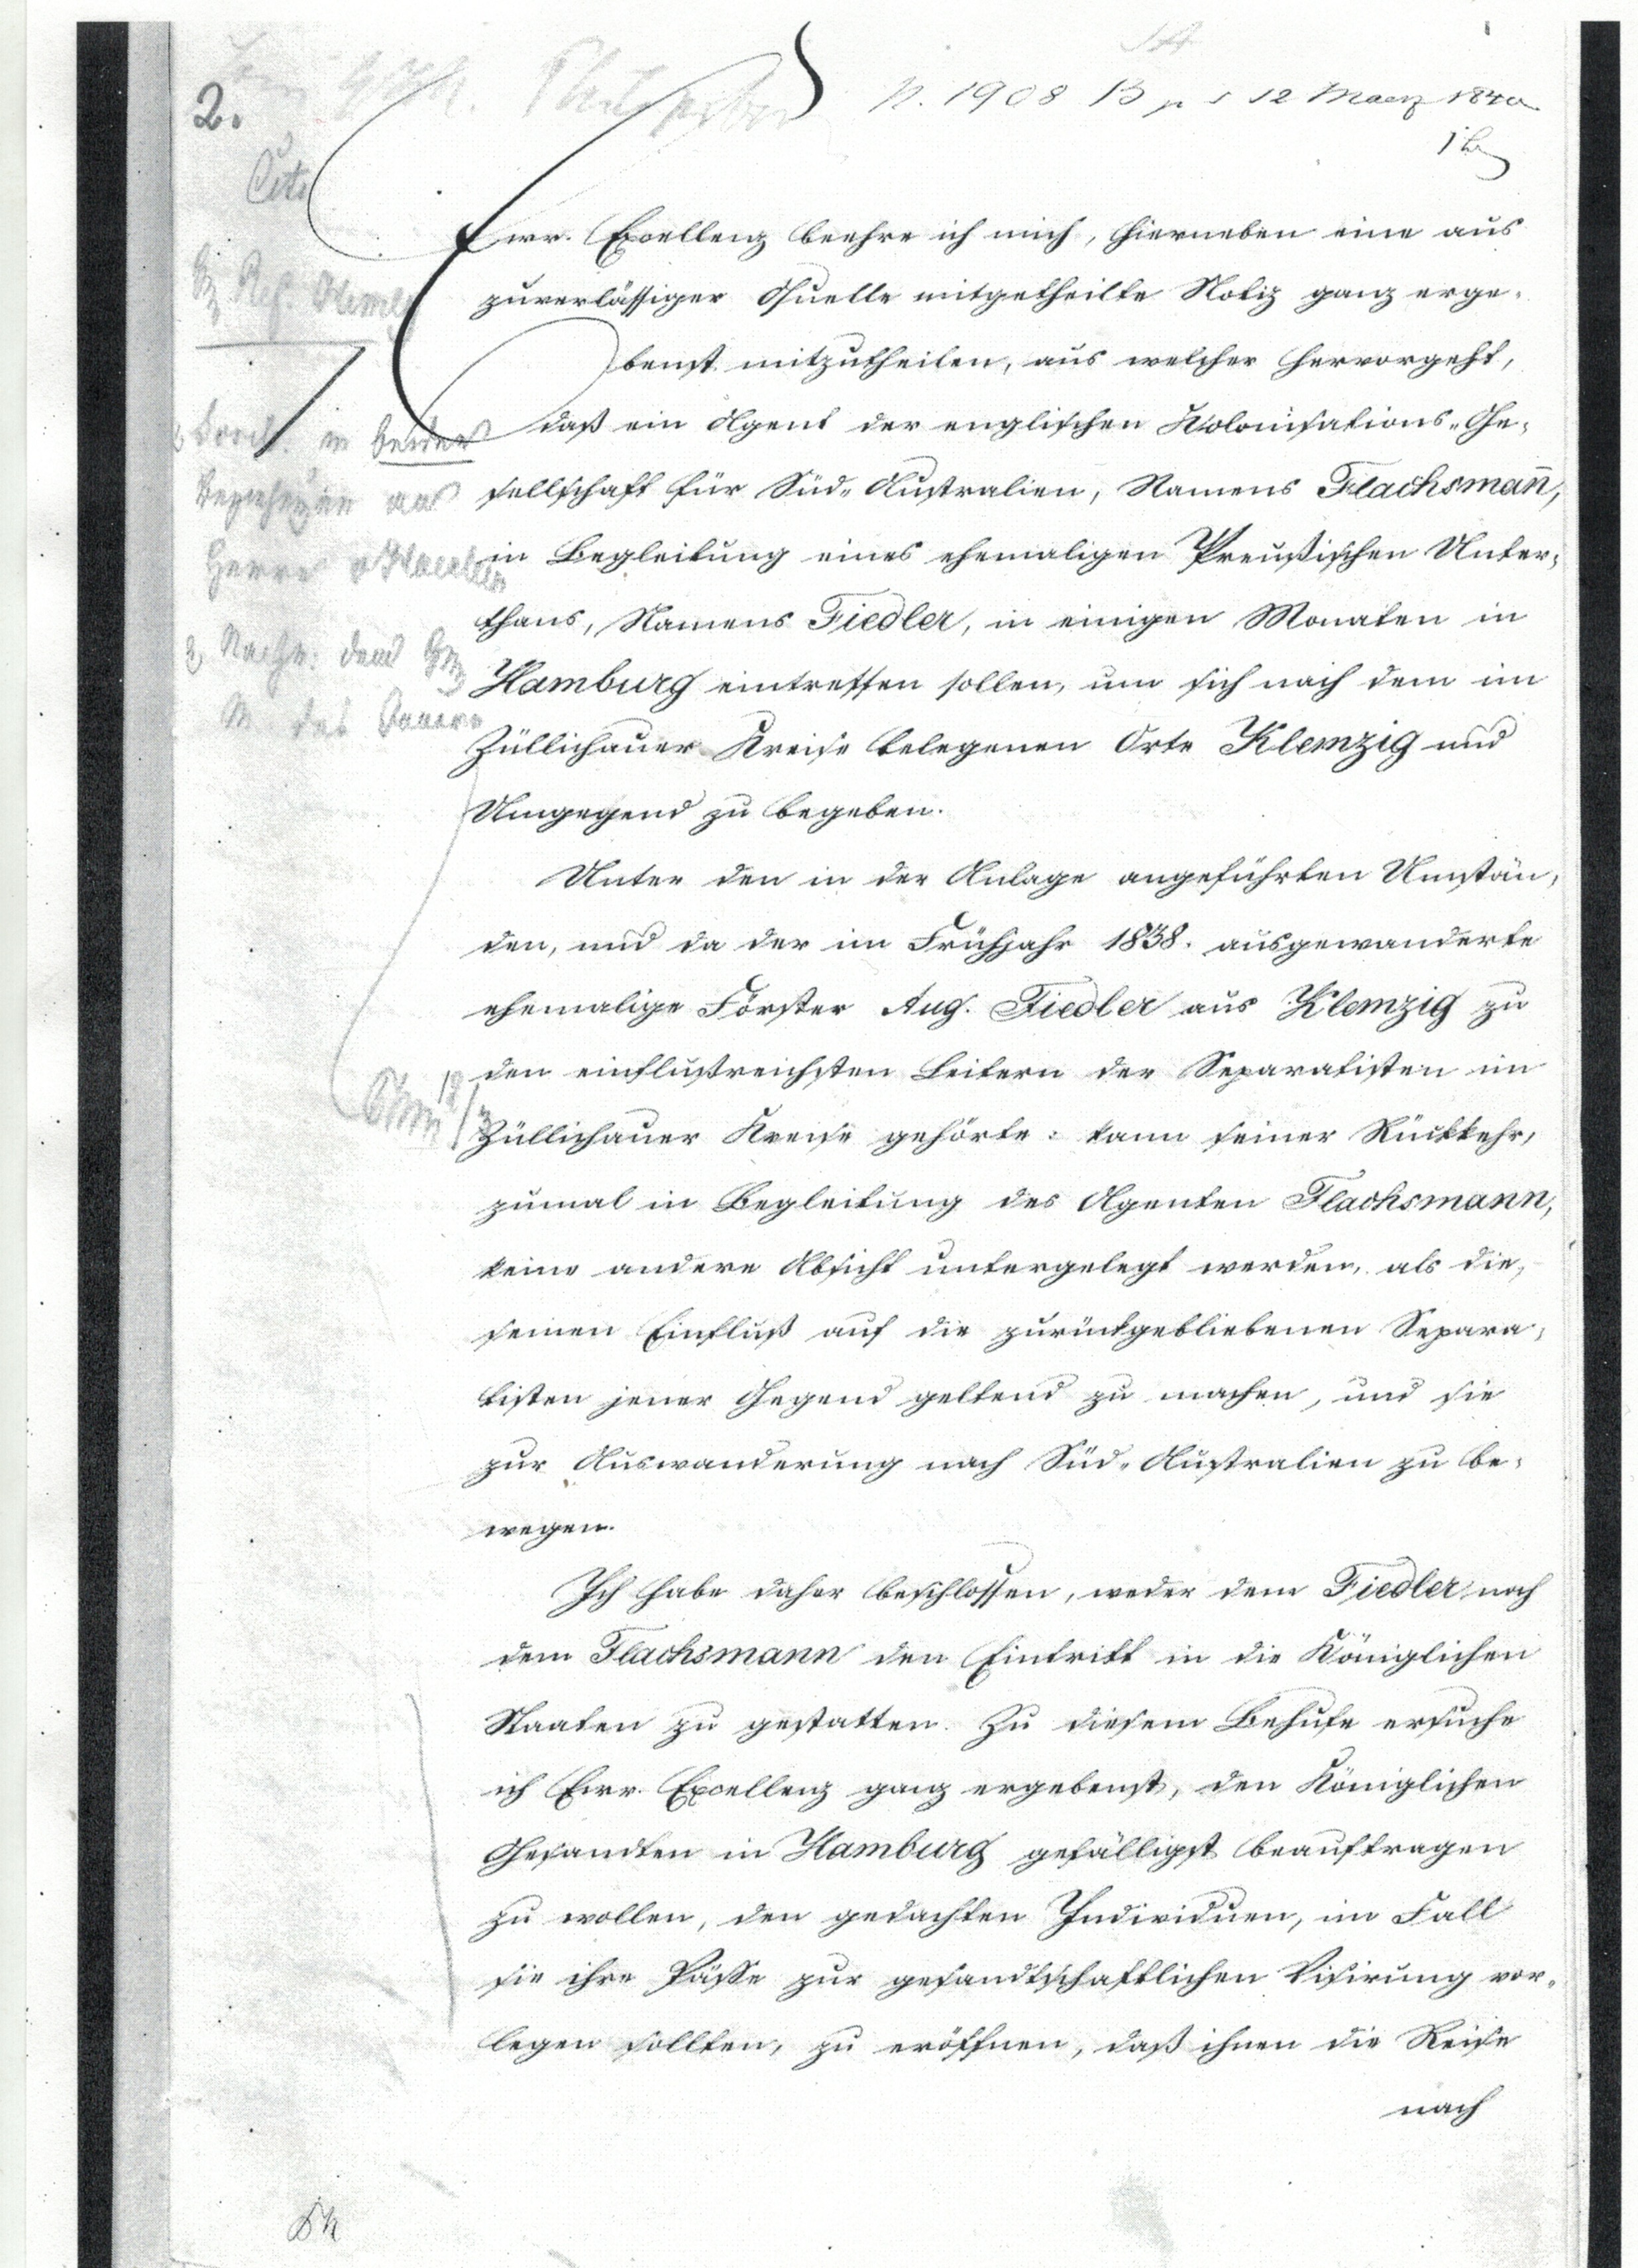 2.
N. 1908 B p s 12 Maerz 1840
Cito
Ewr. Excellenz beehre ich mich, hierneben eine aus
zuverlässiger Quelle mitgetheilte Notiz ganz erge-
benst mitzutheilen, aus welcher hervorgeht,
daß ein Agent der englischen Kolonisations-Ge-
sellschaft für Süd-Australien, Namens Flachsmañ,
in Begleitung eines ehemaligen Preußischen Unter-
thans, Namens Fiedler, in einigen Monaten in
Hamburg eintreffen sollen, um sich nach dem im
Züllichauer Kreise belegenen Orte Klemzig und
Umgegend zu begeben.
Unter den in der Anlage angeführten Umstän-
den, und da der im Frühjahr 1838. ausgewanderte
ehemalige Förster Aug. Fiedler aus Klemzig zu
den einflußreichsten Leitern der Separatisten im
Züllichauer Kreise gehörte: kann seiner Rückkehr,
zumal in Begleitung des Agenten Flachsmann,
keine andere Absicht untergelegt werden, als die,
seinen Einfluß auf die zurückgebliebenen Separa-
tisten jener Gegend geltend zu machen, und sie
zur Auswanderung nach Süd-Australien zu be-
wegen.
Ich habe daher beschlossen, weder dem Fiedler noch
dem Flachsmann den Eintritt in die Königlichen
Staaten zu gestatten. Zu diesem Behufe ersuche
ich Ewr. Excellenz ganz ergebenst, den Königlichen
Gesandten in Hamburg gefälligst beauftragen
zu wollen, den gedachten Individuen, im Fall
sie ihre Pässe zur gesandtschaftlichen Visirung vor-
legen sollten, zu eröffnen, daß ihnen die Reise
nach